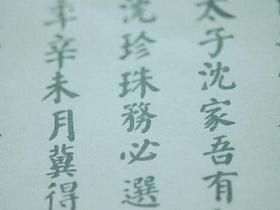 太子沈家吾有
沈珍珠務必選
辛未月冀得